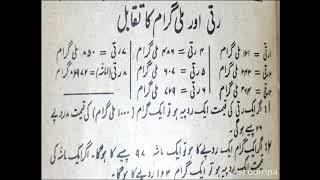 رتی اور ملی گرام کا تقابل
رتی = ۱۲۱ ملی گرام ۴ رتی = ۴۸۶ ملی گرام ۷ رتی = ۸۵۰ ملی گرام
رتی = ملی گرام ۵ رتی = ۶۰۷ ملی گرام ۸ رتی (ماشہ) = ملی گرام
رتی = ملی گرام ۶ رتی = ۷۲۹ ملی گرام
اگر ایک رتی کی قیمت ایک روپیہ ہو تو ایک گرام (۱۰۰۰ ملی گرام) کی قیمت ۸ روپے
پیسے ہوگی۔
اگر ایک گرام ایک روپے کا ہو تو ایک ماشہ ۹۷ پیسے کا ہوگا۔ اگر ایک ماشہ کی
روپیہ ہو تو ایک گرام